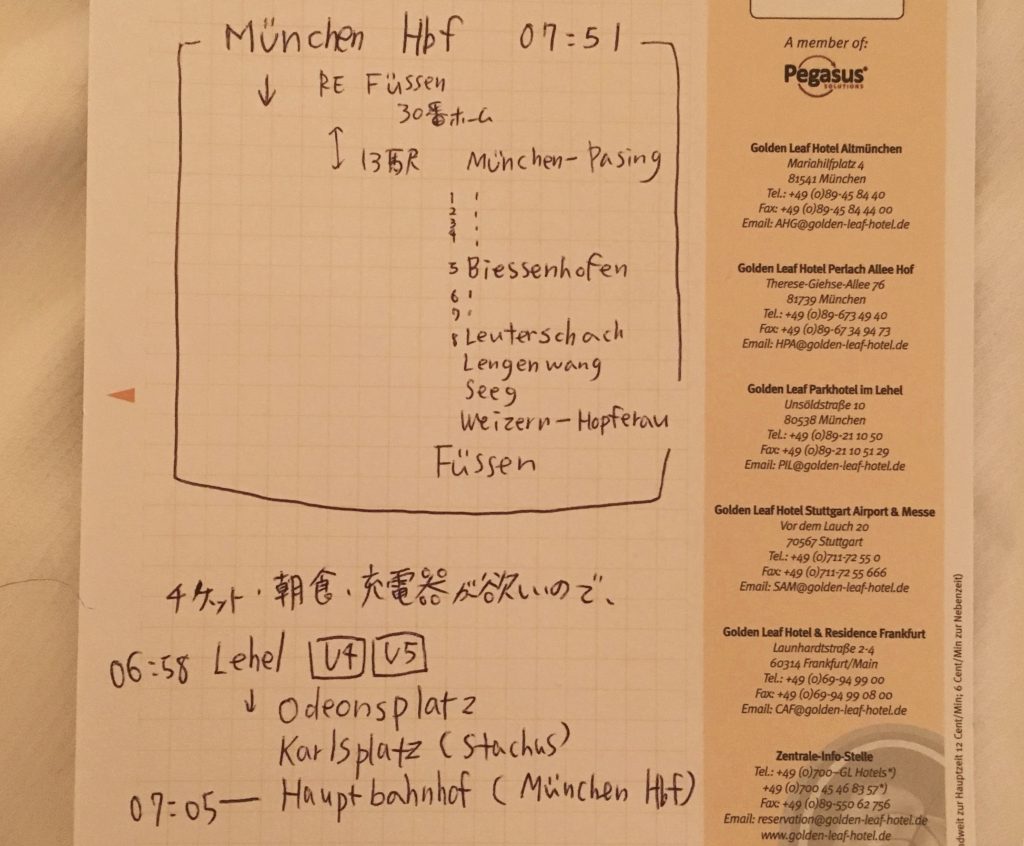 München Hbf 07:51
↓ RE Füssen
30番ホーム
↕ 13駅 München-Pasing
1
2
3
4
5 Biessenhofen
6
7
8 Leuterschach
Lengenwang
Seeg
Weizern-Hopferau
Füssen
チケット・朝食・充電器が欲いので、
06:58 Lehel U4 U5
↓ Odeonsplatz
Karlsplatz (Stachus)
07:05— Hauptbahnhof (München Hbf)
A member of:
Pegasus
SOLUTIONS
Golden Leaf Hotel Altmünchen
Mariahilfplatz 4
81541 München
Tel.: +49 (0)89-45 84 40
Fax: +49 (0)89-45 84 44 00
Email: AHG@golden-leaf-hotel.de
Golden Leaf Hotel Perlach Allee Hof
Therese-Giehse-Allee 76
81739 München
Tel.: +49 (0)89-673 49 40
Fax: +49 (0)89-67 34 94 73
Email: HPA@golden-leaf-hotel.de
Golden Leaf Parkhotel im Lehel
Unsöldstraße 10
80538 München
Tel.: +49 (0)89-21 10 50
Fax: +49 (0)89-21 10 51 29
Email: PIL@golden-leaf-hotel.de
Golden Leaf Hotel Stuttgart Airport & Messe
Vor dem Lauch 20
70567 Stuttgart
Tel.: +49 (0)711-72 55 0
Fax: +49 (0)711-72 55 666
Email: SAM@golden-leaf-hotel.de
Golden Leaf Hotel & Residence Frankfurt
Launhardtstraße 2-4
60314 Frankfurt/Main
Tel.: +49 (0)69-94 99 00
Fax: +49 (0)69-94 99 08 00
Email: CAF@golden-leaf-hotel.de
Zentrale-Info-Stelle
Tel.: +49 (0)700–GL Hotels*)
+49 (0)700 45 46 83 57*)
Fax: +49 (0)89-550 62 756
Email: reservation@golden-leaf-hotel.de
www.golden-leaf-hotel.de
zur Hauptzeit 12 Cent/Min; 6 Cent/Min zur Nebenzeit)